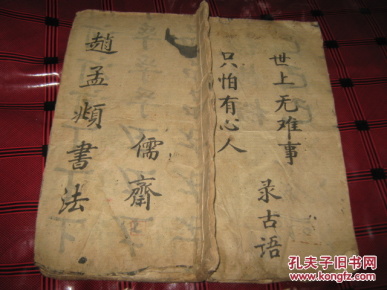 世上无难事
只怕有心人
录古语
趙孟頫書法
儒齋
孔夫子旧书网